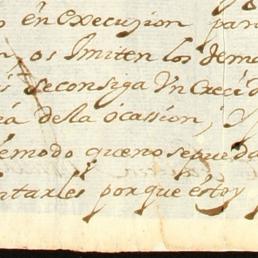 en execuzion par
os Imiten los dema
se consiga Vn Creci d
de la ocassion, y
modo que no se pueda
ntarles por que estoy